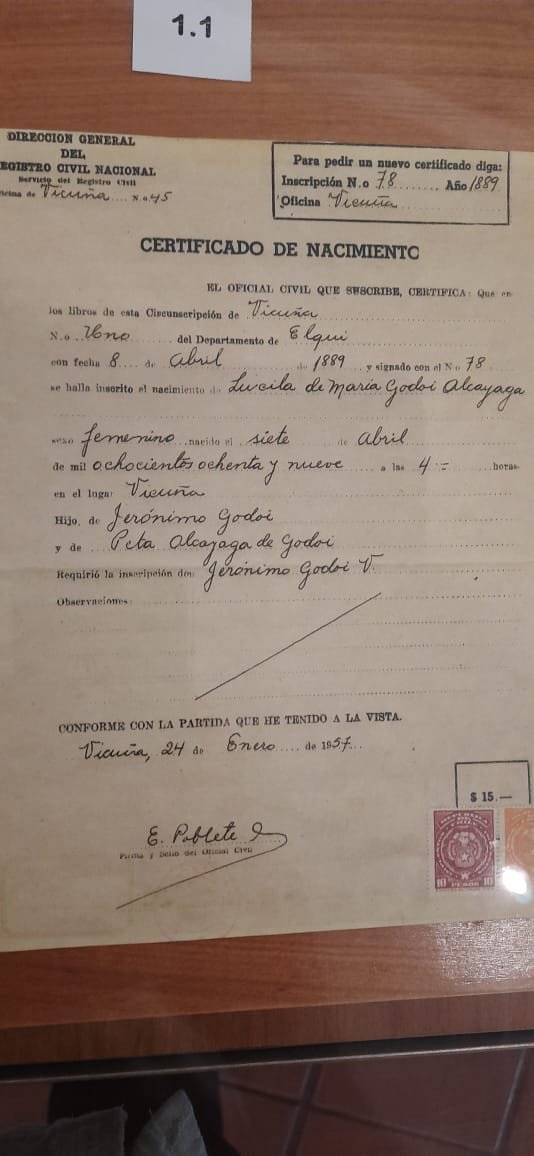 1.1
DIRECCION GENERAL
DEL
REGISTRO CIVIL NACIONAL
Servicio del Registro Civil
Oficina de Vicuña N.o 45
Para pedir un nuevo certificado diga:
Inscripción N.o 78 Año 1889
Oficina Vicuña
CERTIFICADO DE NACIMIENTO
EL OFICIAL CIVIL QUE SUSCRIBE, CERTIFICA: Que en
los libros de esta Circunscripción de Vicuña
N.o Uno del Departamento de Elqui
con fecha 8 de Abril de 1889 y signado con el N.o 78
se halla inscrito el nacimiento de Lucila de María Godoi Alcayaga
sexo femenino nacido el siete de Abril
de mil ochocientos ochenta y nueve a las 4 := horas
en el lugar Vicuña
Hijo de Jerónimo Godoi
y de Peta Alcayaga de Godoi
Requirió la inscripción don Jerónimo Godoi V.
Observaciones:
CONFORME CON LA PARTIDA QUE HE TENIDO A LA VISTA.
Vicuña, 24 de Enero de 1957
$ 15.—
E. Poblete
Firma y Sello del Oficial Civil
10 PESOS 10